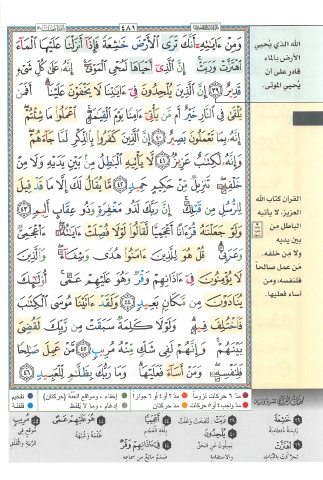 ٤٨١
وَمِنْ ءَايَـٰتِهِۦٓ أَنَّكَ تَرَى ٱلْأَرْضَ خَـٰشِعَةً فَإِذَآ أَنزَلْنَا عَلَيْهَا ٱلْمَآءَ
ٱهْتَزَّتْ وَرَبَتْ ۚ إِنَّ ٱلَّذِىٓ أَحْيَاهَا لَمُحْىِ ٱلْمَوْتَىٰٓ ۚ إِنَّهُۥ عَلَىٰ كُلِّ شَىْءٍ
قَدِيرٌ ٣٩ إِنَّ ٱلَّذِينَ يُلْحِدُونَ فِىٓ ءَايَـٰتِنَا لَا يَخْفَوْنَ عَلَيْنَآ ۗ أَفَمَن
يُلْقَىٰ فِى ٱلنَّارِ خَيْرٌ أَم مَّن يَأْتِىٓ ءَامِنًا يَوْمَ ٱلْقِيَـٰمَةِ ۚ ٱعْمَلُوا۟ مَا شِئْتُمْ ۖ
إِنَّهُۥ بِمَا تَعْمَلُونَ بَصِيرٌ ٤٠ إِنَّ ٱلَّذِينَ كَفَرُوا۟ بِٱلذِّكْرِ لَمَّا جَآءَهُمْ ۖ
وَإِنَّهُۥ لَكِتَـٰبٌ عَزِيزٌ ٤١ لَّا يَأْتِيهِ ٱلْبَـٰطِلُ مِنۢ بَيْنِ يَدَيْهِ وَلَا مِنْ
خَلْفِهِۦ ۖ تَنزِيلٌ مِّنْ حَكِيمٍ حَمِيدٍ ٤٢ مَّا يُقَالُ لَكَ إِلَّا مَا قَدْ قِيلَ
لِلرُّسُلِ مِن قَبْلِكَ ۚ إِنَّ رَبَّكَ لَذُو مَغْفِرَةٍ وَذُو عِقَابٍ أَلِيمٍ ٤٣
وَلَوْ جَعَلْنَـٰهُ قُرْءَانًا أَعْجَمِيًّا لَّقَالُوا۟ لَوْلَا فُصِّلَتْ ءَايَـٰتُهُۥٓ ۖ ءَا۬عْجَمِىٌّ
وَعَرَبِىٌّ ۗ قُلْ هُوَ لِلَّذِينَ ءَامَنُوا۟ هُدًى وَشِفَآءٌ ۖ وَٱلَّذِينَ
لَا يُؤْمِنُونَ فِىٓ ءَاذَانِهِمْ وَقْرٌ وَهُوَ عَلَيْهِمْ عَمًى ۚ أُو۟لَـٰٓئِكَ
يُنَادَوْنَ مِن مَّكَانٍۭ بَعِيدٍ ٤٤ وَلَقَدْ ءَاتَيْنَا مُوسَى ٱلْكِتَـٰبَ
فَٱخْتُلِفَ فِيهِ ۗ وَلَوْلَا كَلِمَةٌ سَبَقَتْ مِن رَّبِّكَ لَقُضِىَ
بَيْنَهُمْ ۚ وَإِنَّهُمْ لَفِى شَكٍّ مِّنْهُ مُرِيبٍ ٤٥ مَّنْ عَمِلَ صَـٰلِحًا
فَلِنَفْسِهِۦ ۖ وَمَنْ أَسَآءَ فَعَلَيْهَا ۗ وَمَا رَبُّكَ بِظَلَّـٰمٍ لِّلْعَبِيدِ ٤٦
الله الذي يُحيي
الأرض بالماء
قادر على أن
يُحيي الموتى.
القران كتاب الله
العزيز، لا يأتيه
الباطل من
بين يديه
ولا مِن خلفه.
مَن عمل صالحاً
فلنفسه، ومن
أساء فعليها.
مد ٦ حركات لزوماً
مد ٢ أو ٤ أو ٦ جوازاً
إخفاء، ومواقع الغنة (حركتان)
تفخيم
مد واجب ٤ أو ٥ حركات
مد حركتان
إدغام، وما لا يُلفظ
قلقلة